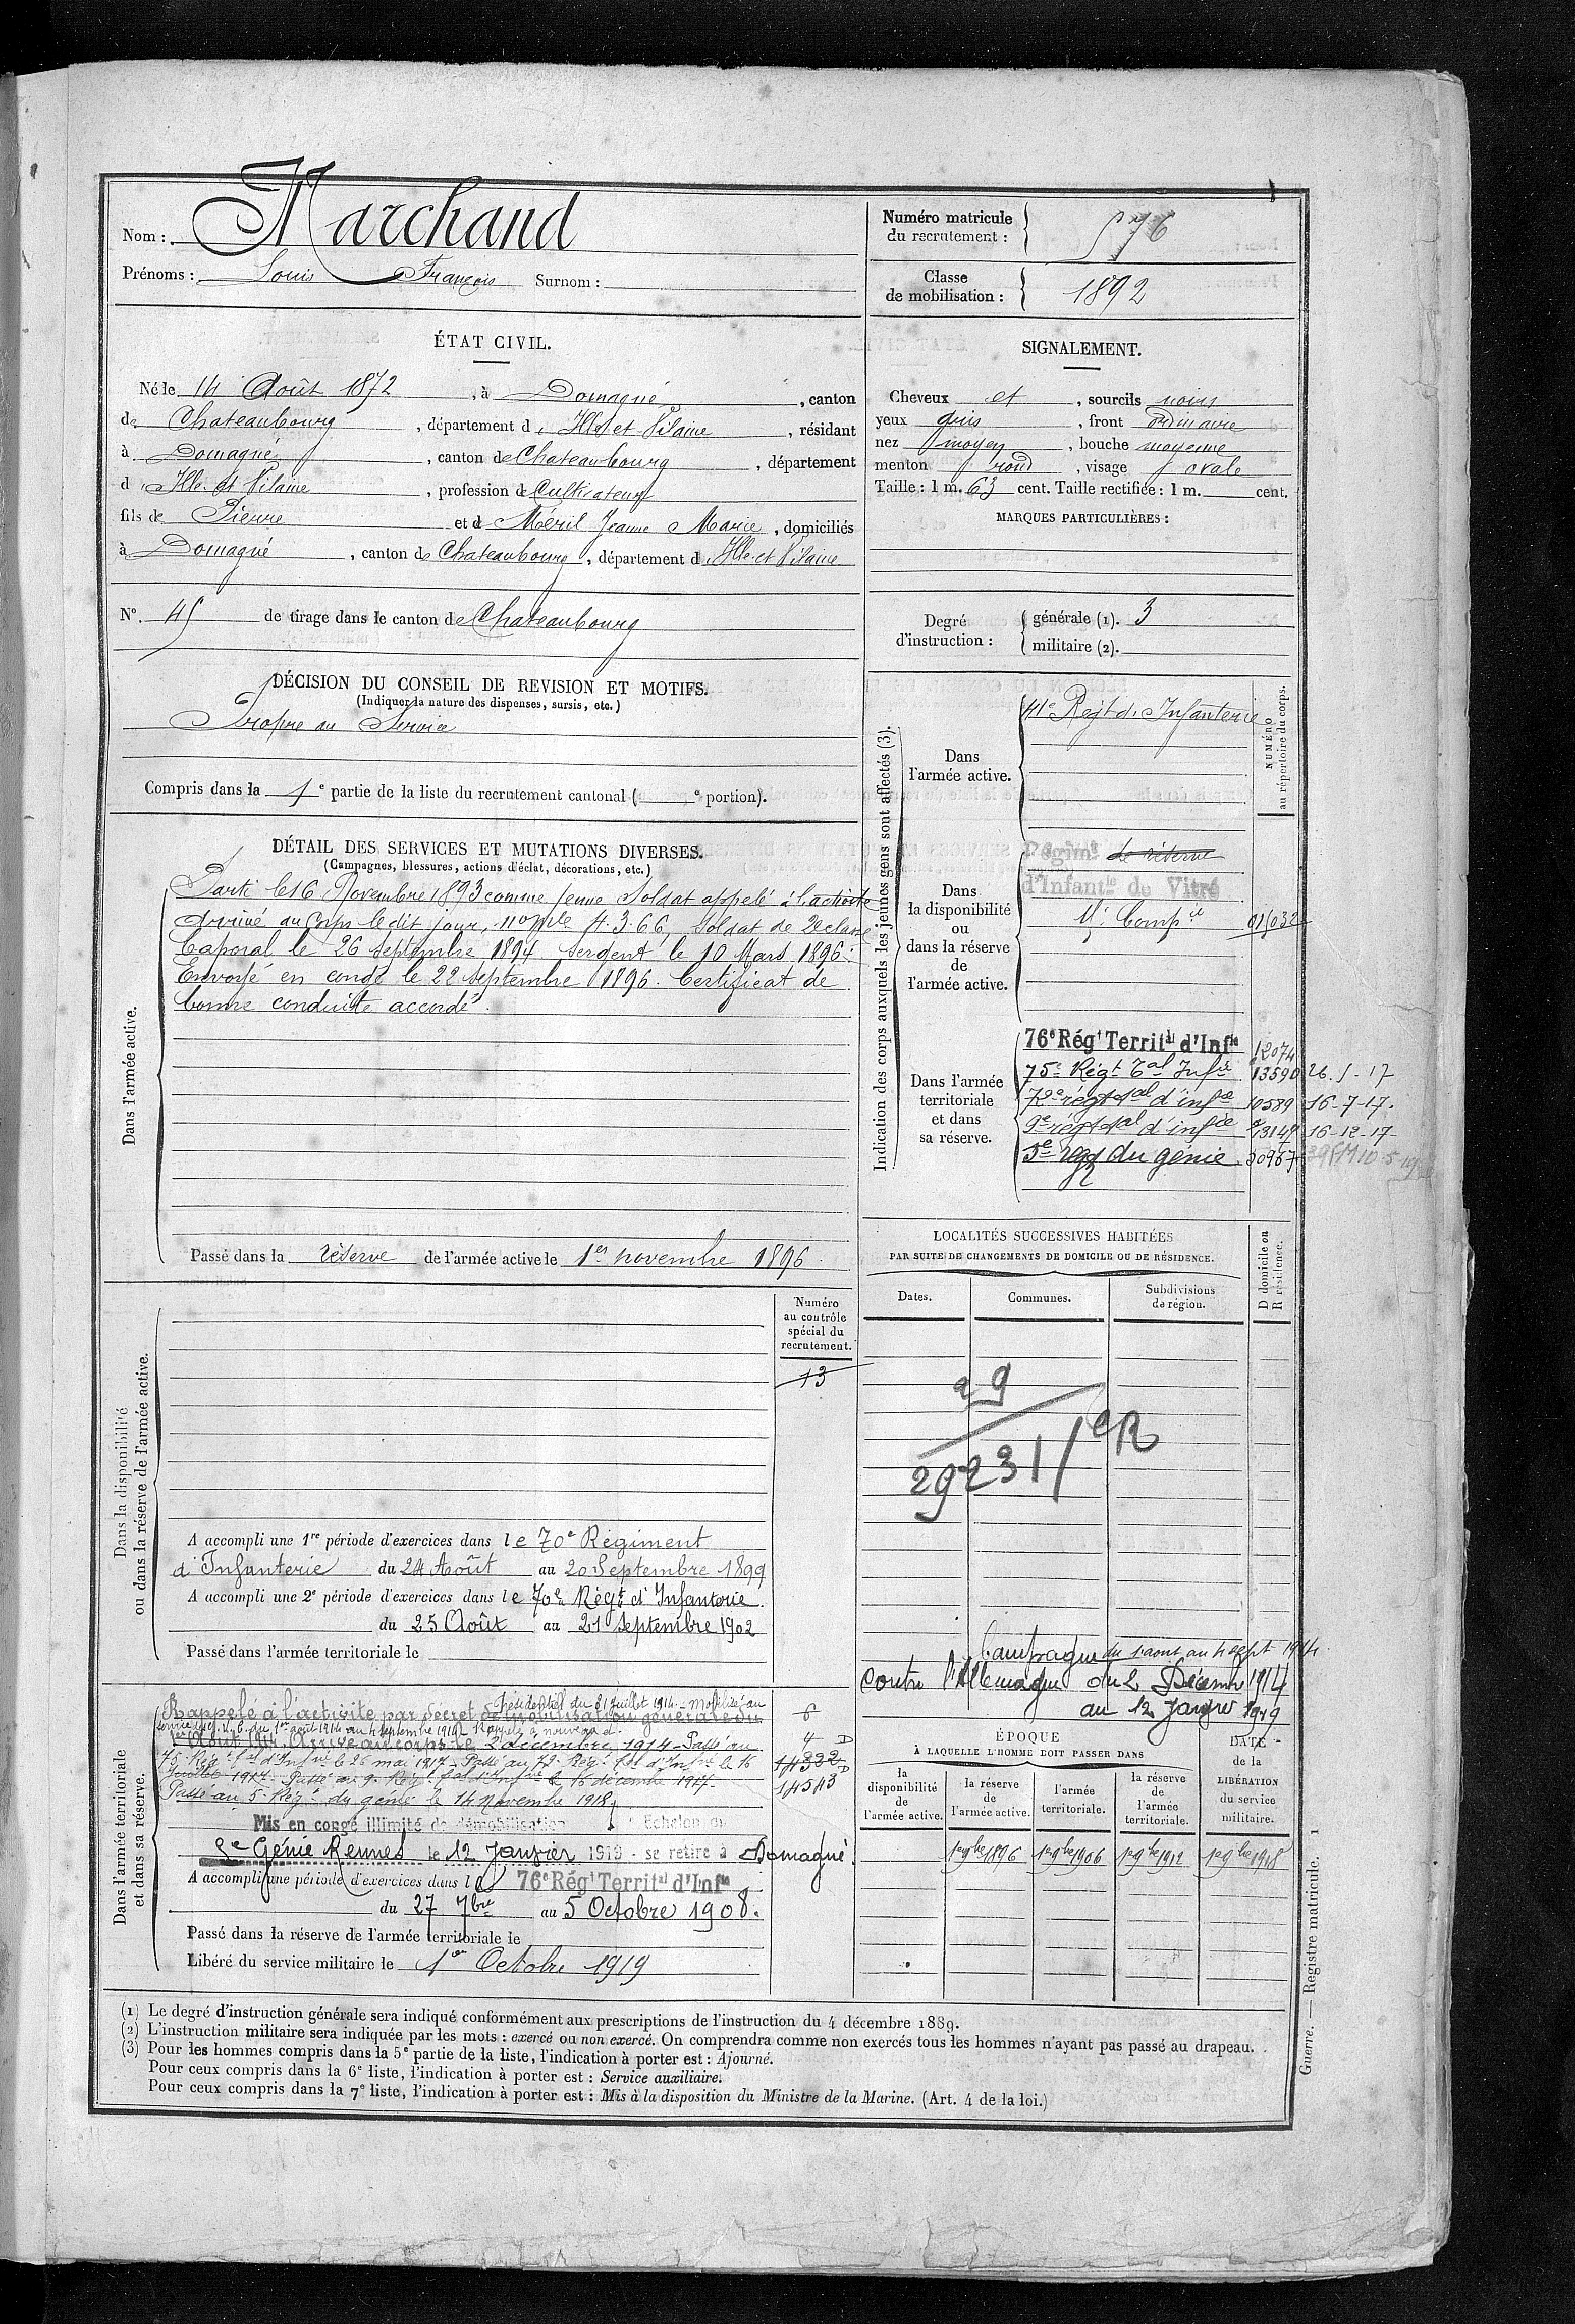 Nom : Marchand
Prénoms : Louis François Surnom :
Numéro matricule du recrutement : 576
Classe de mobilisation : 1892
ÉTAT CIVIL.
Né le 14 Août 1872, à Domagné, canton
de Chateaubourg, département d'Ille et Vilaine, résidant
à Domagné, canton de Chateaubourg, département
d'Ille et Vilaine, profession de Cultivateur
fils de Pierre et de Méril Jeanne Marie, domiciliés
à Domagné, canton de Chateaubourg, département d'Ille et Vilaine
N° 45 de tirage dans le canton de Chateaubourg
SIGNALEMENT.
Cheveux et, sourcils noirs
yeux gris, front ordinaire
nez moyen, bouche moyenne
menton rond, visage ovale
Taille : 1 m. 63 cent. Taille rectifiée : 1 m. cent.
MARQUES PARTICULIÈRES :
Degré d'instruction : générale (1). 3
militaire (2).
DÉCISION DU CONSEIL DE REVISION ET MOTIFS.
(Indiquer la nature des dispenses, sursis, etc.)
Propre au Service
Compris dans la 1e partie de la liste du recrutement cantonal ( e portion).
DÉTAIL DES SERVICES ET MUTATIONS DIVERSES.
(Campagnes, blessures, actions d'éclat, décorations, etc.)
Dans l'armée active.
Parti le 16 Novembre 1893 comme jeune Soldat appelé à l'activité
Arrivé au Corps le dit jour, no mle 4366, soldat de 2e classe
Caporal le 26 septembre 1894 sergent le 10 Mars 1896.
Envoyé en congé le 22 septembre 1896. Certificat de
bonne conduite accordé.
Passé dans la réserve de l'armée active le 1er novembre 1896.
Indication des corps auxquels les jeunes gens sont affectés (3).
NUMÉRO au répertoire du corps.
Dans l'armée active.
41e Régt d'Infanterie
Dans la disponibilité ou dans la réserve de l'armée active.
Régimt de réserve
d'Infantie de Vitré
Compie
Dans l'armée territoriale et dans sa réserve.
76e Régt Territal d'Infie 12074
75e Régt Tal Infie 13590 26-5-17
72e régt tal d'infie 10589 16-7-17.
9e régt tal d'infie 13149 16-12-17-
5e regt du génie 30967
LOCALITÉS SUCCESSIVES HABITÉES
PAR SUITE DE CHANGEMENTS DE DOMICILE OU DE RÉSIDENCE.
Dates.
Communes.
Subdivisions de région.
D domicile ou R résidence.
29
29231/CR
Numéro au contrôle spécial du recrutement.
13
Dans la disponibilité ou dans la réserve de l'armée active.
A accompli une 1re période d'exercices dans le 70e Régiment
d'Infanterie du 24 Août au 20 Septembre 1899
A accompli une 2e période d'exercices dans le 70e Régt d'Infanterie.
du 25 Août au 21 Septembre 1902
Passé dans l'armée territoriale le
Campagne du 1 aout au 4 sept 1914.
Contre l'Allemagne du 2 Décembre 1914
au 12 Janvier 1919
Dans l'armée territoriale et dans sa réserve.
Présidentiel du 31 Juillet 1914. - Mobilisé au
Rappelé à l'activité par décret de mobilisation générale du
du 1er août 1914 au 4 septembre 1914. Rappelé à nouveau
1er Août 1914. Arrivé au corps le 2 décembre 1914 - Passé au
75e Régt tal d'Infie le 26 mai 1917 - Passé au 72e Régt tal d'Infie le 16
Juillet 1917 - Passé au 9e Régt tal d'Infie le 16 décembre 1917-
Passé au 5e Régt du génie le 14 Novembre 1918
Mis en congé illimité de démobilisation Echelon au
Génie Rennes le 12 Janvier 1919 - se retire à Domagné.
A accompli une période d'exercices dans le 76e Régt Territal d'Infie
du 27 7bre au 5 Octobre 1908.
Passé dans la réserve de l'armée territoriale le
Libéré du service militaire le 1er Octobre 1919
ÉPOQUE
À LAQUELLE L'HOMME DOIT PASSER DANS
la disponibilité de l'armée active.
la réserve de l'armée active.
l'armée territoriale.
la réserve de l'armée territoriale.
DATE de la LIBÉRATION du service militaire.
1er 9bre 1896 1er 9bre 1906 1er 9bre 1912 1er 9bre 1918
(1) Le degré d'instruction générale sera indiqué conformément aux prescriptions de l'instruction du 4 décembre 1889.
(2) L'instruction militaire sera indiquée par les mots : exercé ou non exercé. On comprendra comme non exercés tous les hommes n'ayant pas passé au drapeau.
(3) Pour les hommes compris dans la 5e partie de la liste, l'indication à porter est : Ajourné.
Pour ceux compris dans la 6e liste, l'indication à porter est : Service auxiliaire.
Pour ceux compris dans la 7e liste, l'indication à porter est : Mis à la disposition du Ministre de la Marine. (Art. 4 de la loi.)
Guerre. — Registre matricule. 1